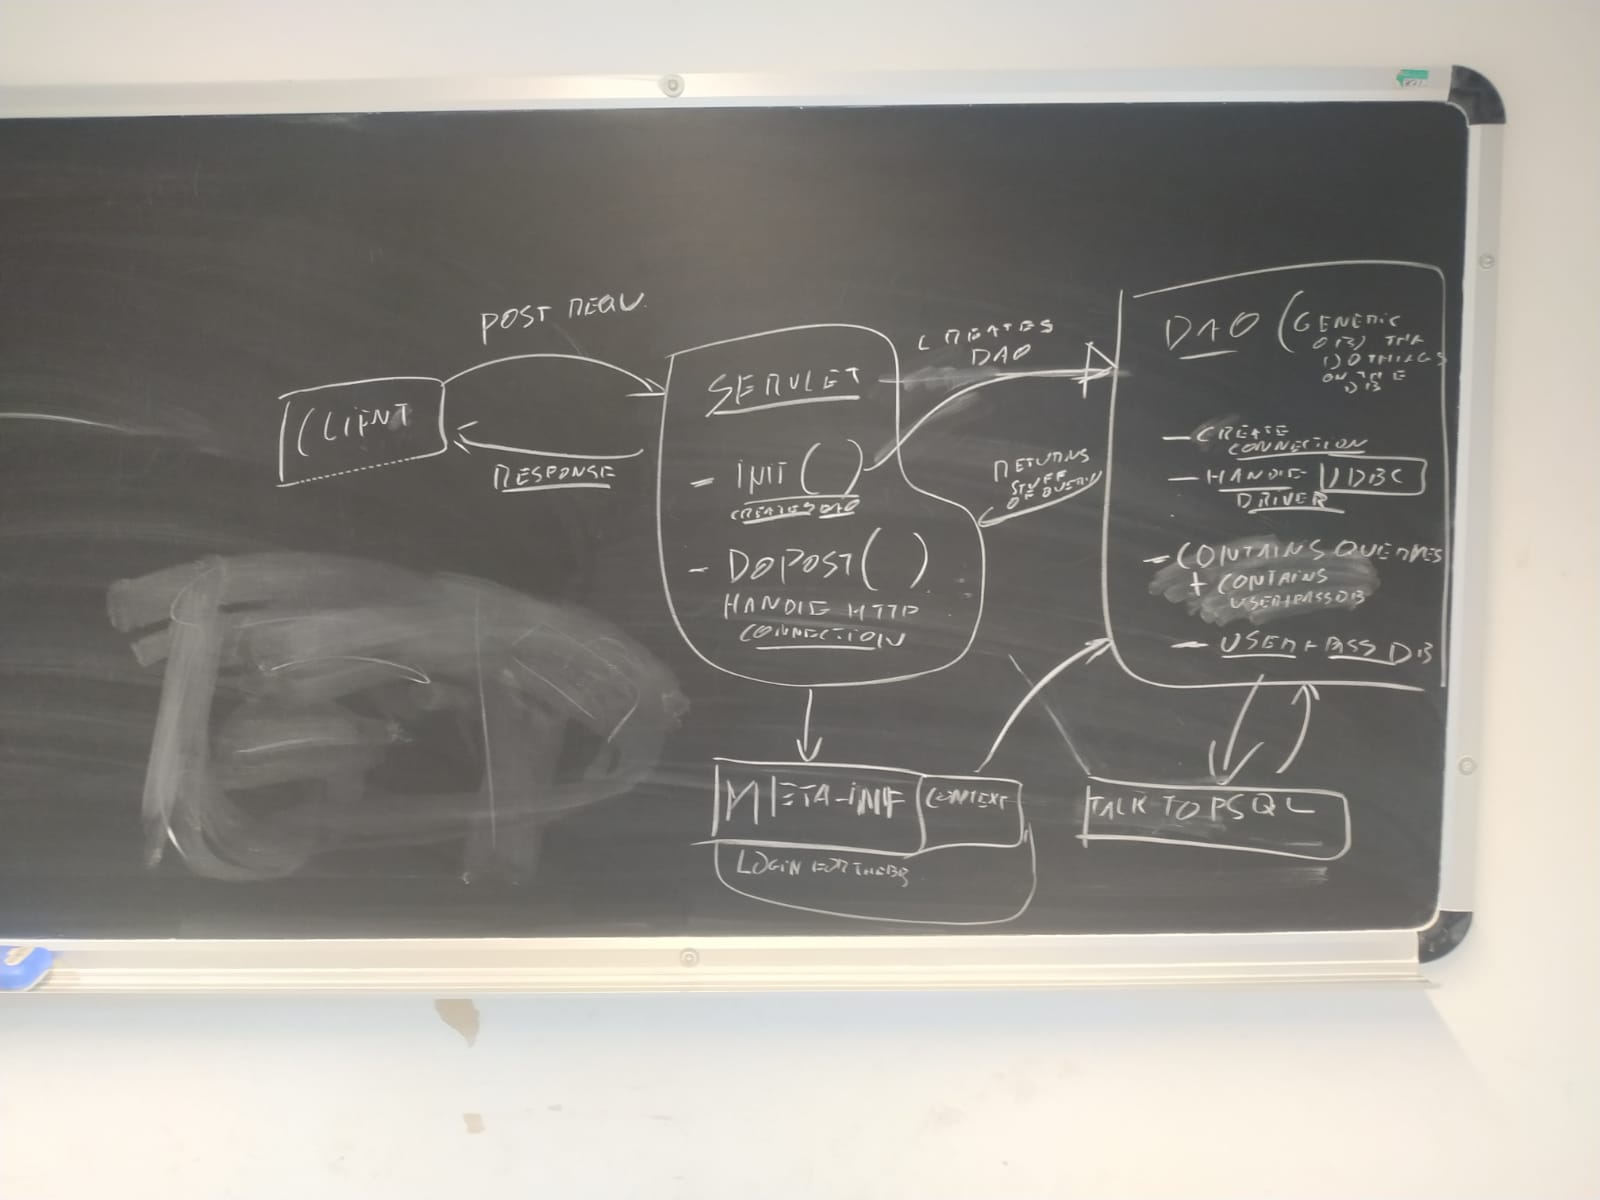 POST REQU.
CLIENT
RESPONSE
SERVLET
- INIT()
CREATES DAO
- DOPOST()
HANDLE HTTP
CONNECTION
CREATES
DAO
RETURNS
STUFF
OF QUERY
DAO (GENERIC
OBJ THA
DO THINGS
ON THE
DB
- CREATE
CONNECTION
- HANDLE JDBC
DRIVER
- CONTAINS QUERIES
+ CONTAINS
USER+PASS DB
- USER + PASS DB
META-INF CONTEXT
LOGIN FOR THE DB
TALK TO PSQL